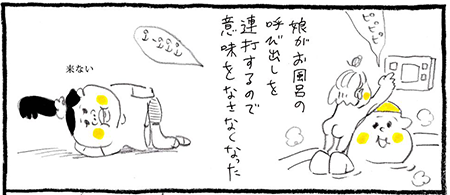 ピピピピ
娘がお風呂の
呼び出しを
連打するので
意味をなさなくなった
ピピピピ
来ない